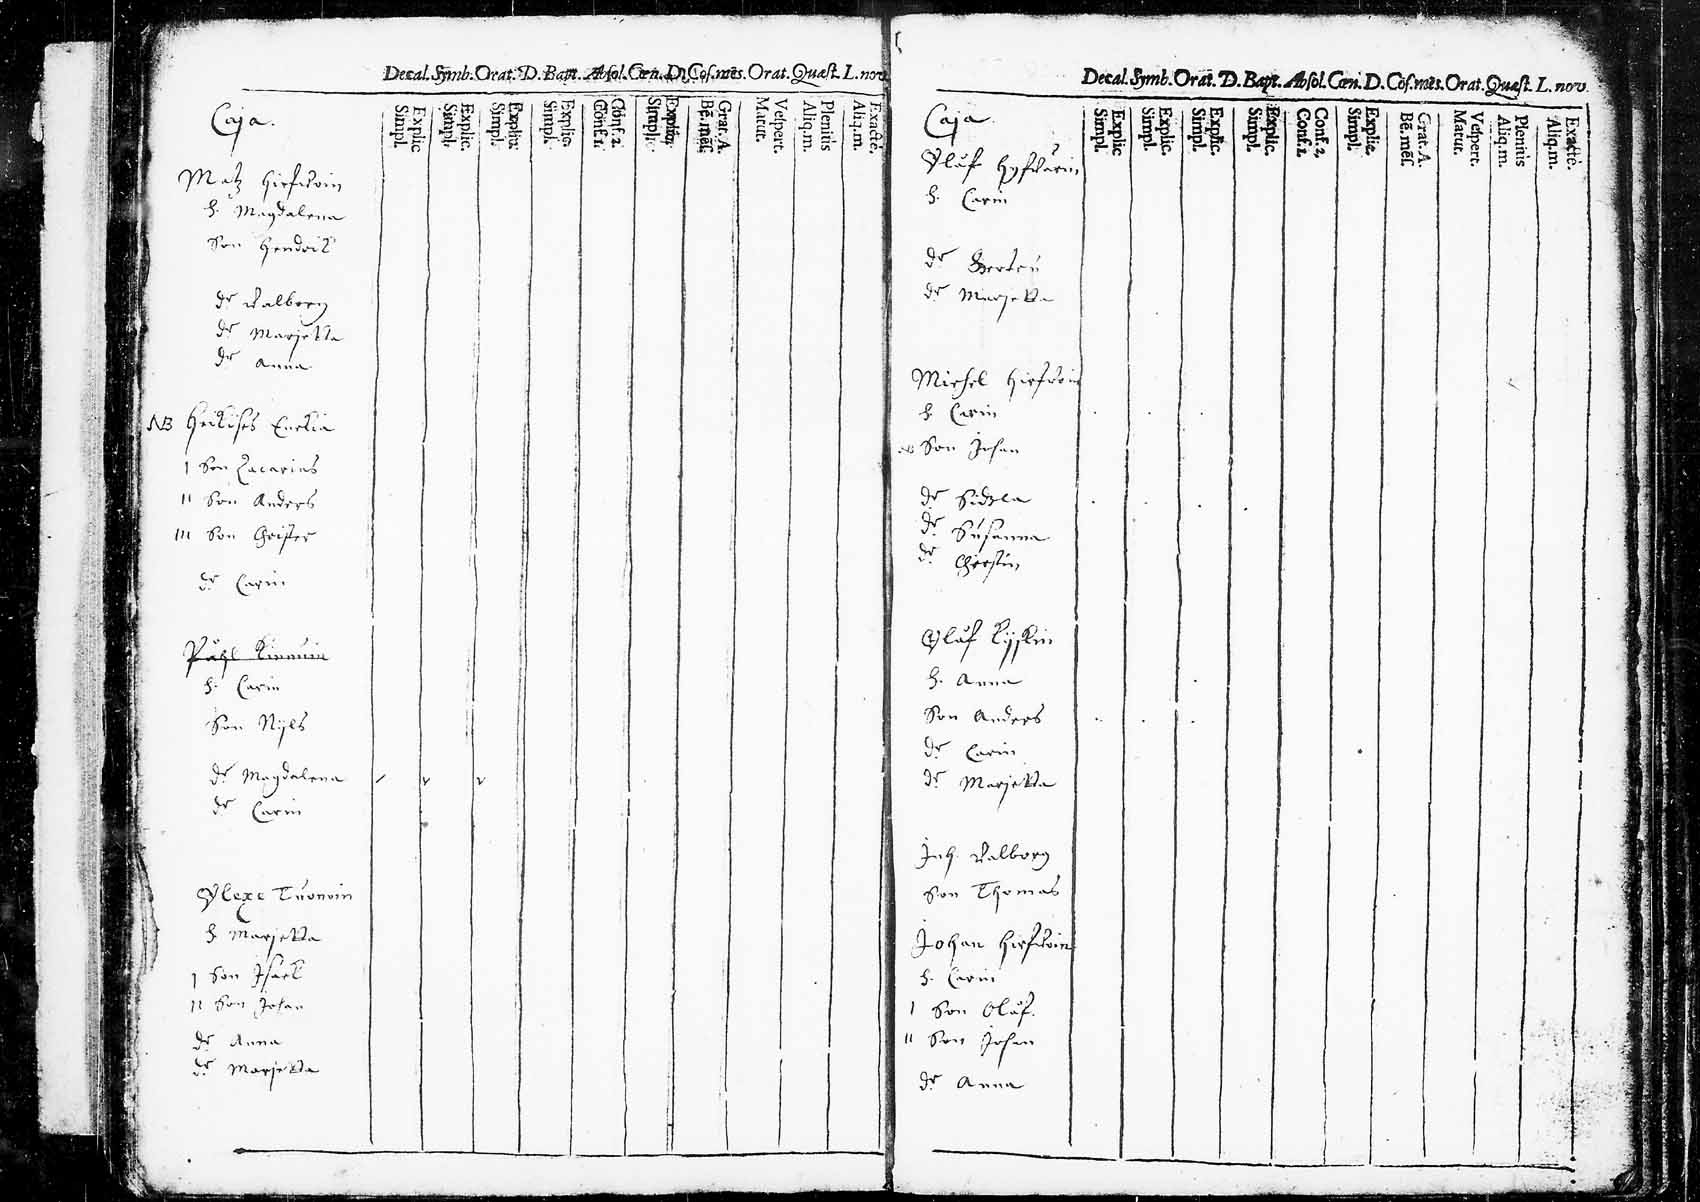 Decal. Symb. Orat. D. Bapt. Absol. Cœn. D. Cōf. mēs. Orat. Quæst. L. nov.
Explic Simpl. Explic. Simpl. Explic. Simpl. Explic. Simpl. Conf. 2. Conf. 1. Explic. Simpl. Grat. A. Bē. mēs. Vespert. Matut. Plenitis Aliq. m. Exactè. Aliq. m.
Caja.
Matz Hirfwoin
h. Magdalena
Son Hendrik
dr Valborg
dr Marjetta
dr Anna
NB Heikises Enckia
I Son Zacarias
II Son Anders
III Son Christer
dr Carin
Påhl Kinnuin
h. Carin
Son Nijls
dr Magdalena
dr Carin
Ylexe Tuonoin
h. Marjetta
I Son Isaek
II Son Johan
dr Anna
dr Marjetta
Decal. Symb. Orat. D. Bapt. Absol. Cœn. D. Cōf. mēs. Orat. Quæst. L. nov.
Explic Simpl. Explic. Simpl. Explic. Simpl. Explic. Simpl. Conf. 2, Conf. 1. Explic. Simpl. Grat. A. Bē. mēs. Vespert. Matut. Plenitis Aliq. m. Exactè. Aliq. m.
Caja.
Oluf Hyfwärin
h. Carin
dr
dr Marjetta
Michel Hirfwoin
h. Carin
Son Johan
dr Sidzla
dr Susanna
dr Cherstin
Oluf Kyskin
h. Anna
Son Anders
dr Carin
dr Marjetta
Inh. Valborg
Son Thomas
Johan Hirfwoin
h. Carin
I Son Oluf.
II Son Johan
dr Anna